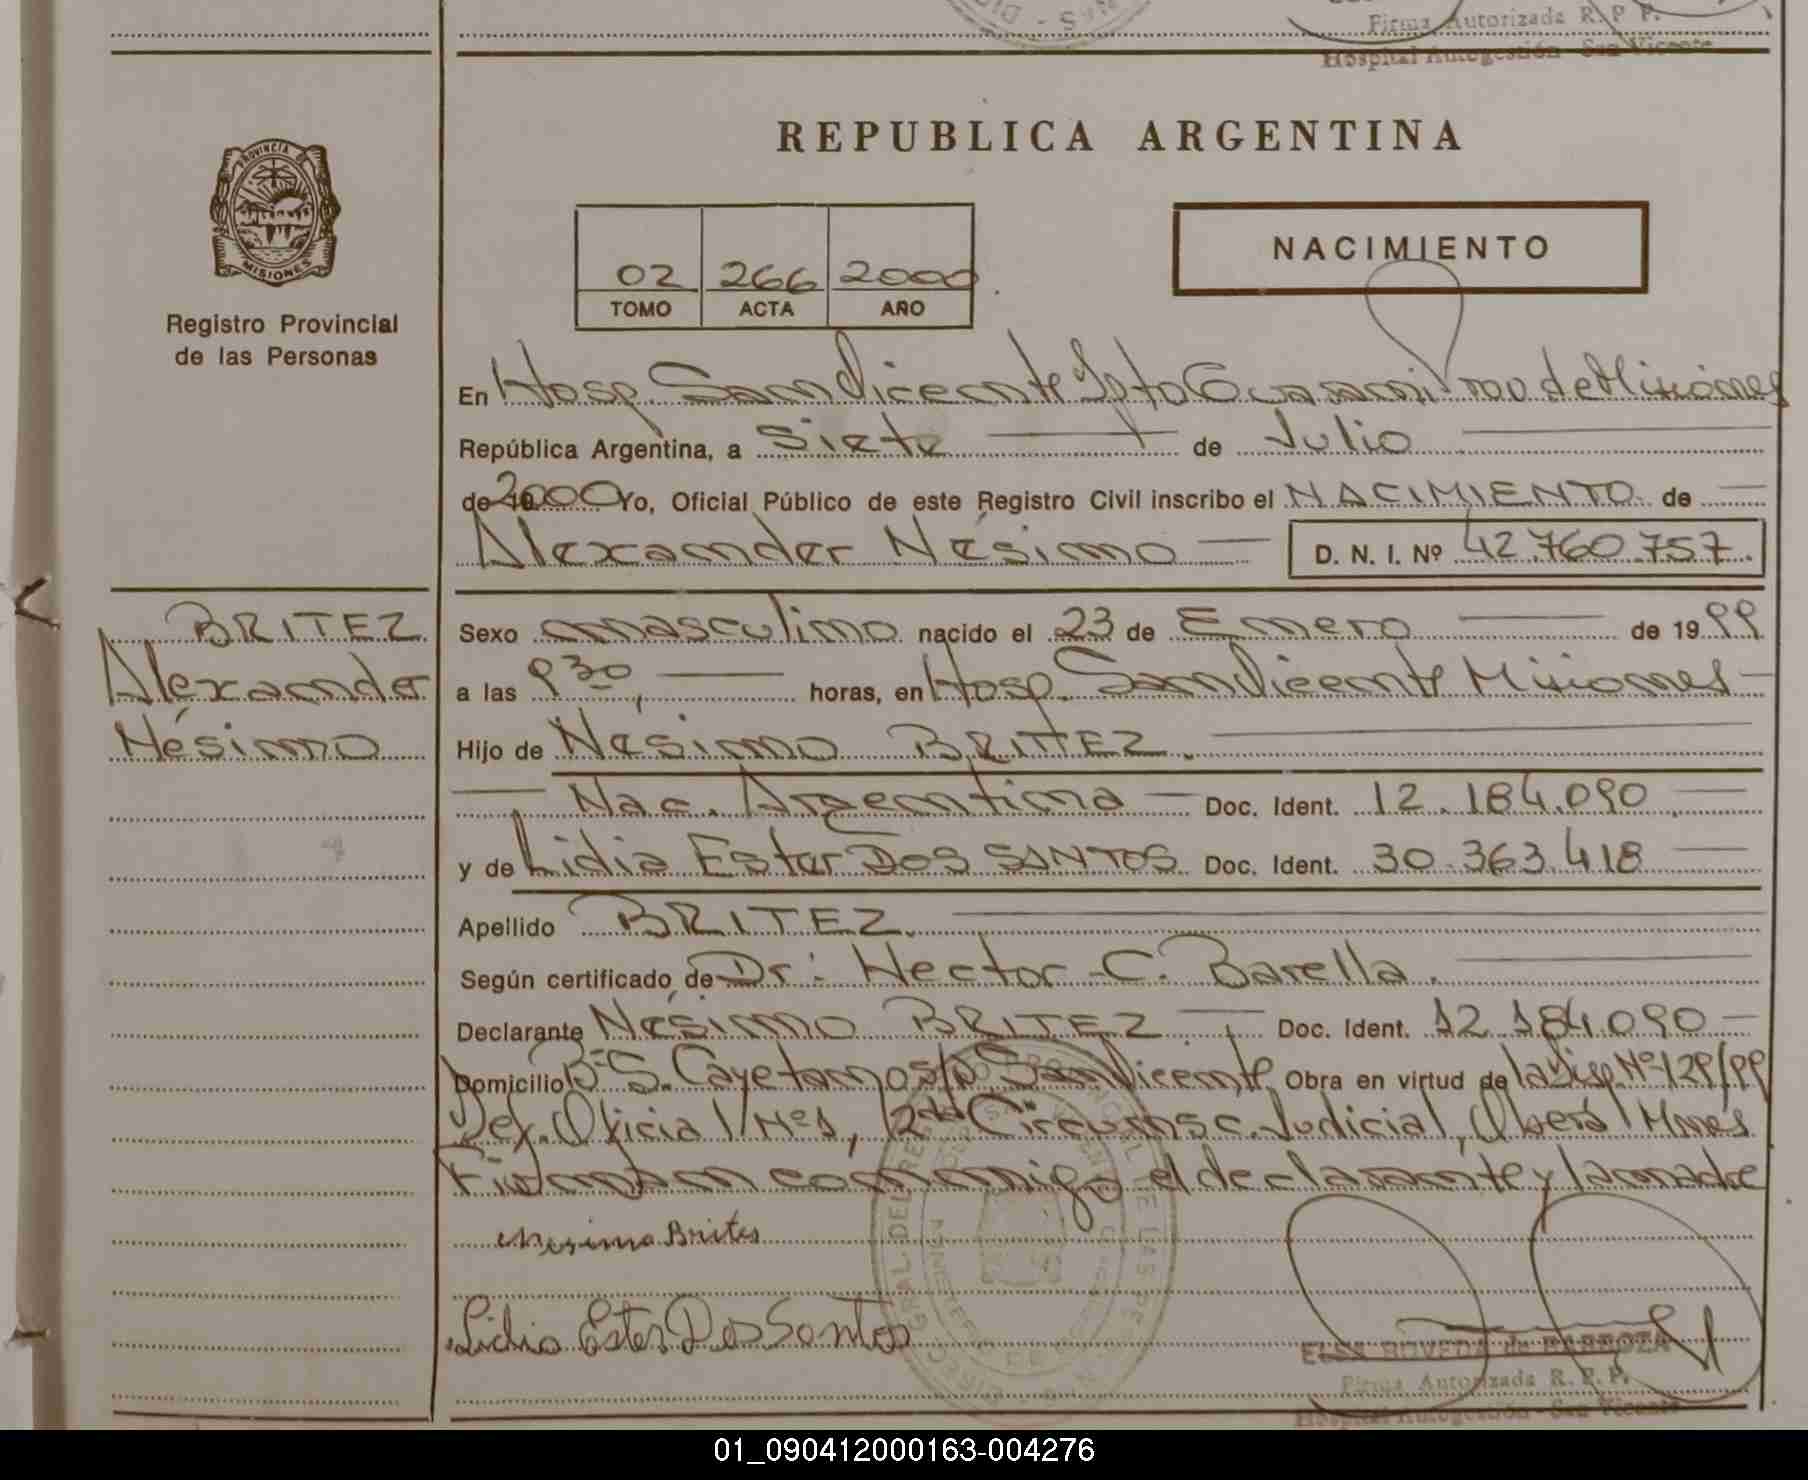 Firma Autorizada R. P. P.
Hospital Autogestión - San Vicente
REPUBLICA ARGENTINA
PROVINCIA DE
MISIONES
Registro Provincial
de las Personas
02 266 2000
TOMO ACTA AÑO
NACIMIENTO
En Hosp. San Vicente Dpto Guaraní Prov de Misiones
República Argentina, a siete de Julio
de 2000 Yo, Oficial Público de este Registro Civil inscribo el NACIMIENTO de
Alexander Nésimo D. N. I. Nº 42.760.757.
BRITEZ
Alexander
Nésimo
Sexo masculino nacido el 23 de Enero de 1999
a las 9 30, horas, en Hosp. San Vicente Misiones
Hijo de Nésimo BRITEZ.
Nac. Argentina Doc. Ident. 12.184.090
y de Lidia Ester DOS SANTOS Doc. Ident. 30.363.418
Apellido BRITEZ.
Según certificado de Dr: Hector C. Barella.
Declarante Nésimo BRITEZ Doc. Ident. 12.184.090
Domicilio Bº S. Cayetano San Vicente Obra en virtud de la Disp Nº 129/99
Def. Oficial Nº 1, 2da Circunsc. Judicial, Oberá Mnes
Firman conmigo el declarante y la madre
Nesimo Brites
Lidia Ester Dos Santos
ELSA BOVEDA de BARBOZA
Firma Autorizada R. P. P.
Hospital Autogestión - San Vicente
01_090412000163-004276